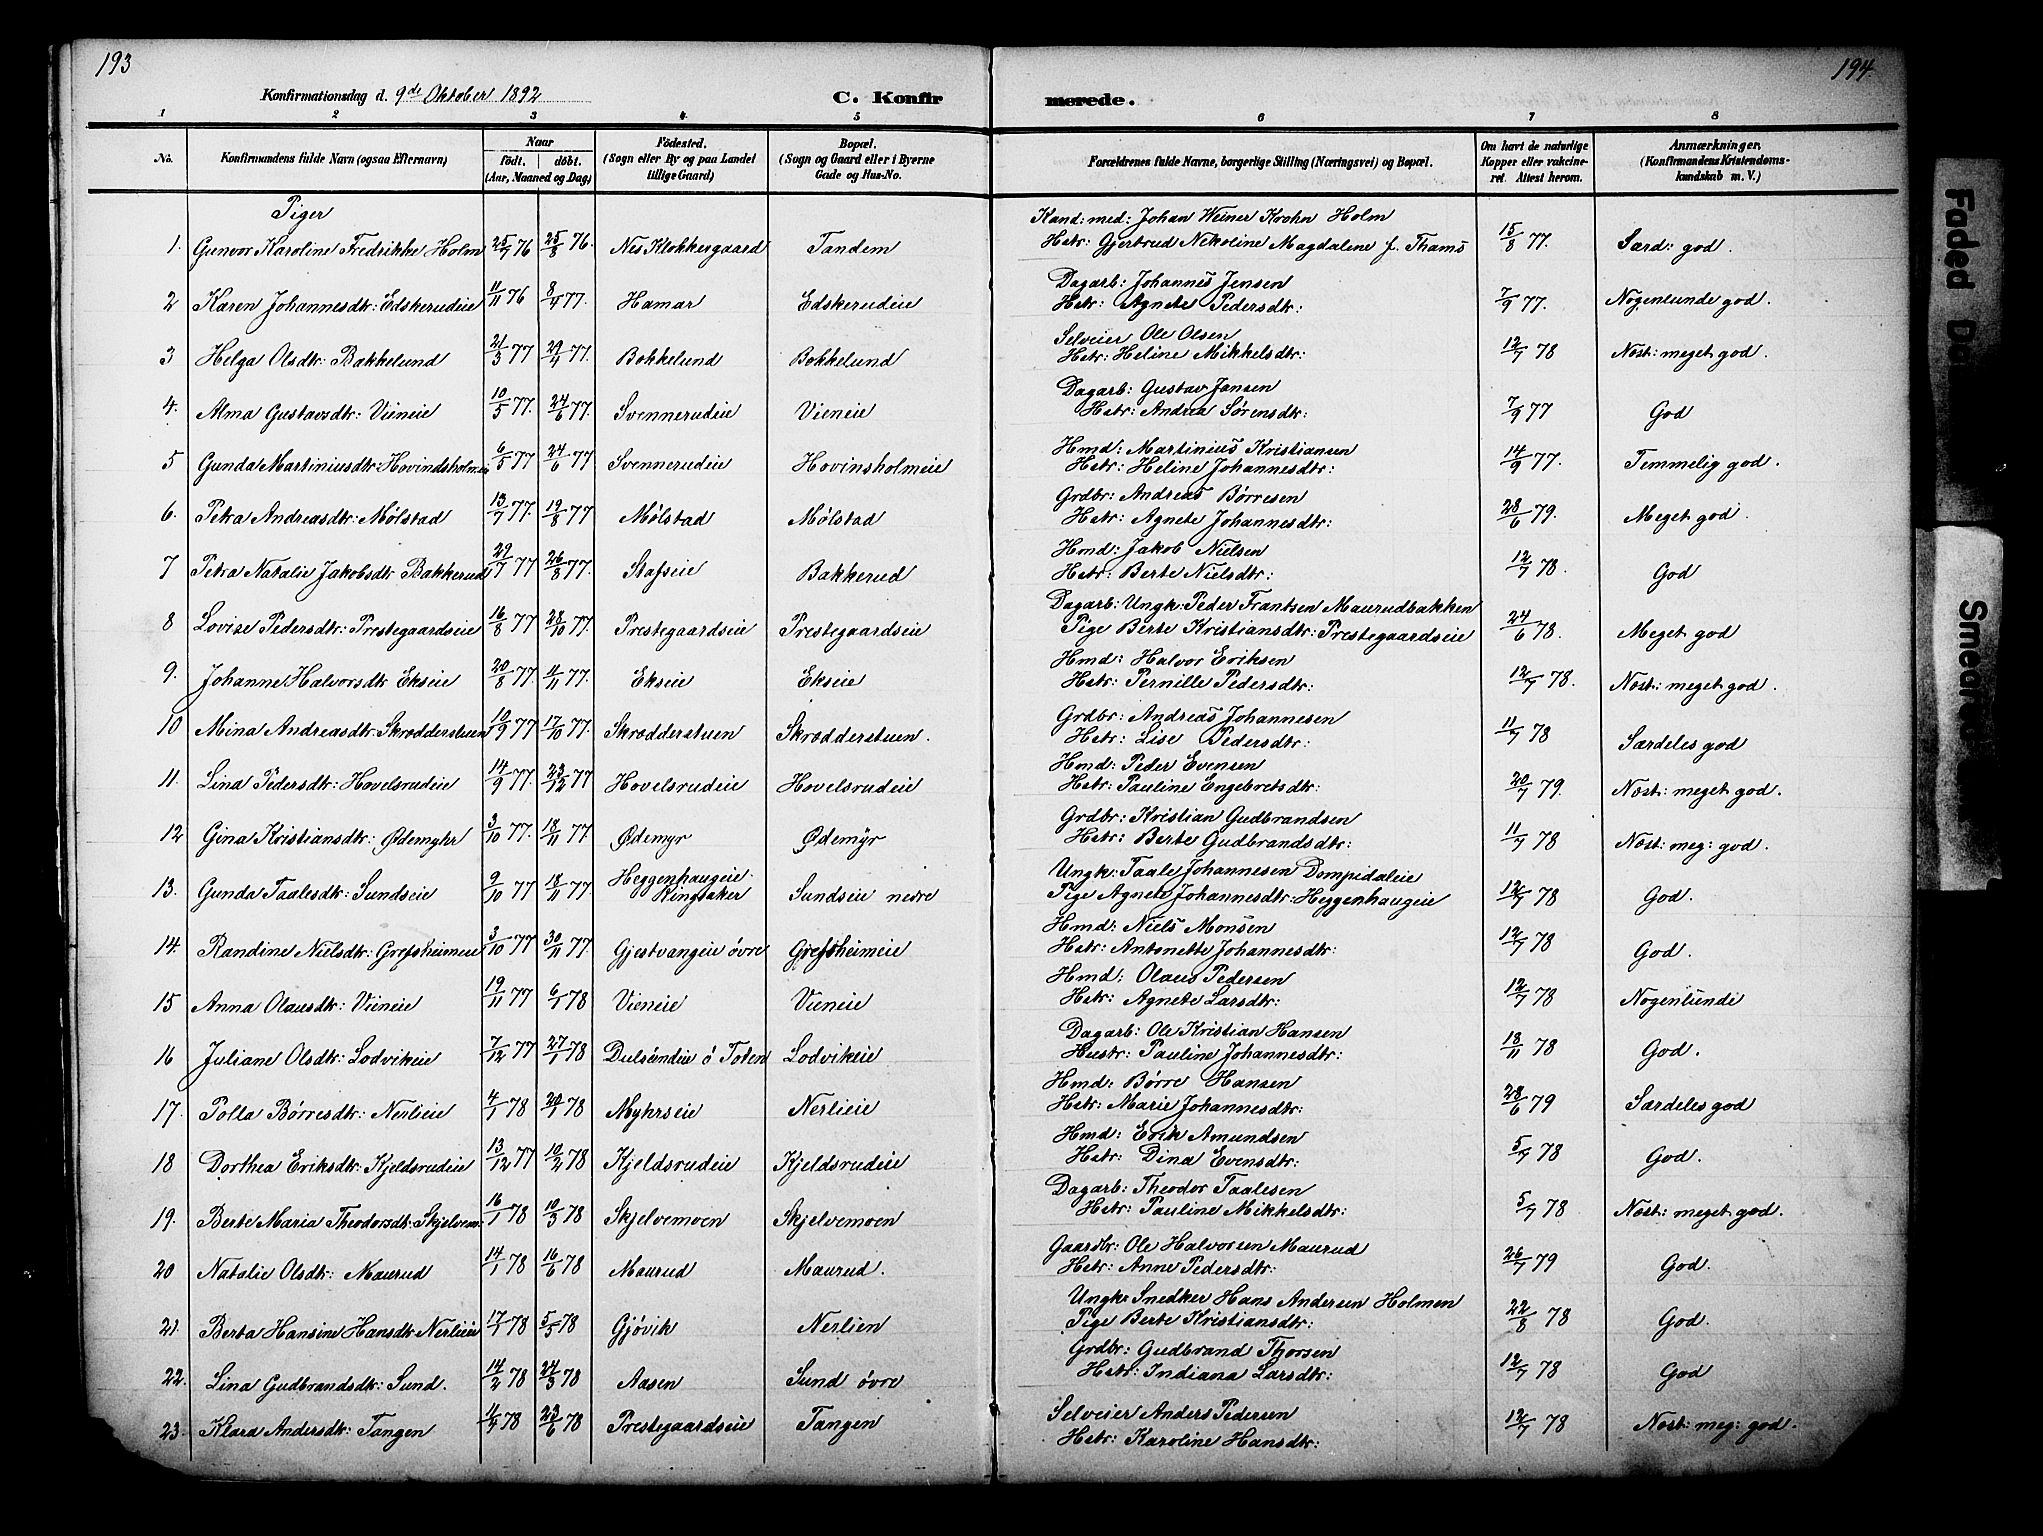 193
194
Konfirmationsdag d. 9de Oktober 1892
C. Konfir merede.
1 2 3 4 5 6 7 8
No. Konfirmandens fulde Navn (ogsaa Efternavn) Naar født. døbt. (Aar, Maaned og Dag) Fødested. (Sogn eller By og paa Landet tillige Gaard) Bopæl. (Sogn og Gaard eller i Byerne Gade og Hus-No. Forældrenes fulde Navne, borgerlige Stilling (Næringsvei) og Bopæl. Om havt de naturlige Kopper eller vakcineret. Attest herom. Anmærkninger. (Konfirmandens Kristendomskundskab m. V.)
Piger
1. Gunvor Karoline Fredrikke Holm 25/7 76 25/8 76. Nes Klokkergaard Tandem Kand: med: Johan Weiner Krohn Holm
Hstr: Gjertrud Nikoline Magdalene f. Thams 15/8 77. Særd: god.
2 Karen Johannesdtr: Edskerudeie 11/11 76 8/4 77. Hamar Edskerudeie Dagarb: Johannes Jensen
Hstr: Agnete Pedersdtr: 7/9 77. Nogenlunde god.
3 Helga Olsdtr: Bakkelund 21/3 77 29/4 77. Bakkelund Bakkelund Selveier Ole Olsen
Hstr: Heline Mikkelsdtr: 12/7 78 Næst: meget god.
4. Alma Gustavsdtr: Vieneie 10/5 77. 24/6 77. Svennerudeie Vieneie Dagarb: Gustav Jansen
Hstr: Andrea Sørensdtr: 7/9 77 God
5 Gunda Martiniusdtr: Hovindsholmeie 6/5 77 24/6 77 Svennerudeie Hovinsholmeie Hmd: Martinius Kristiansen
Hstr: Heline Johannesdtr: 14/9 77. Temmelig god.
6. Petra Andreasdtr: Mølstad 13/7 77. 19/8 77 Mølstad Mølstad Grdbr: Andreas Børresen
Hstr: Agnete Johannesdtr: 28/6 79. Meget god.
7 Petra Natalie Jakobsdtr Bakkerud 29/7 77 26/8 77. Stafseie Bakkerud Hmd: Jakob Nielsen
Hstr: Berte Nielsdtr: 12/7 78. God
8 Lovise Pedersdtr: Prestegaardseie 16/8 77 28/10 77. Prestegaardseie Prestegaardseie Dagarb: Ungk: Peder Frantsen Maurudbakken
Pige Berte Kristiansdtr: Prestegaardseie 24/6 78. Meget god
9. Johanne Halvorsdtr Ekseie 20/8 77. 11/11 77. Ekseie Ekseie Hmd: Halvor Eriksen
Hstr: Pernille Pedersdtr: 12/7 78. Næst: meget god.
10 Mina Andreasdtr: Skrædderstuen 10/9 77 17/10 77. Skrædderstuen Skrædderstuen. Grdbr: Andreas Johannesen
Hstr: Lise Pedersdtr: 11/7 78 Særdeles god
11. Lina Pedersdtr: Hovelsrudeie 14/9 77. 23/12 77 Hovelsrudeie Hovelsrudeie Hmd: Peder Evensen
Hstr: Pauline Engebretsdtr: 20/7 79. Næst: meget god.
12 Gina Kristiansdtr: Ødemyhr 3/10 77. 18/11 77 Ødemyr Ødemyr Grdbr: Kristian Gudbrandsen
Hstr: Berte Gudbrandsdtr: 11/7 78 Næst: meg: god.
13. Gunda Taalesdtr: Sundseie 9/10 77 18/11 77. Heggenhaugeie Ringsaker Sundseie nedre Ungk: Taale Johannesen Dompidaleie
Pige Agnete Johannesdtr: Heggenhaugeie 12/7 78 God.
14. Randine Nielsdtr: Grefsheimeie 3/10 77 30/11 77 Gjestvangeie øvre Grefsheimeie Hmd: Niels Monsen
Hstr: Antonette Johannesdtr: 12/7 78 God.
15 Anna Olausdtr: Vieneie 19/11 77 6/1 78 Vieneie Vieneie Hmd: Olaus Pedersen
Hstr: Agnete Larsdtr: 12/7 78 Nogenlunde
16 Juliane Olsdtr: Lodvikeie 7/12 77 27/1 78 Dulsundeie ø Toten Lodvikeie Dagarb: Ole Kristian Hansen
Hustr: Pauline Johannesdtr: 18/11 78 God.
17. Polla Børresdtr: Nerlieie 4/1 78 20/1 78 Myhrseie Nerlieie Hmd: Børre Hansen
Hstr: Marie Johannesdtr: 28/6 79 Særdeles god
18 Dorthea Eriksdtr: Kjeldsrudeie 13/12 77 10/2 78 Kjeldsrudeie Kjeldsrudeie Hmd: Erik Amundsen
Hstr: Dina Evensdtr: 5/7 78 God.
19. Berte Maria Theodorsdtr: Skjelvem: 16/1 78 10/3 78 Skjelvemoen Skjelvemoen Dagarb: Theodor Taalesen
Hstr: Pauline Mikkelsdtr: 5/7 78 Næst: meget god.
20 Natalie Olsdtr: Maurud 14/1 78 16/6 78 Maurud Maurud. Gaardbr: Ole Halvorsen Maurud
Hstr: Anne Pedersdtr: 26/7 79 God.
21. Berta Hansine Hansdtr Nerlieie 17/1 78 5/5 78 Gjøvik Nerlien Ungk: Snedker Hans Andersen Holmen
Pige Berte Kristiansdtr: 22/8 78 God.
22. Lina Gudbrandsdtr: Sund. 14/2 78 24/3 78 Aasen Sund øvre Grdbr: Gudbrand Thorsen
Hstr: Indiana Larsdtr: 12/7 78 God
23. Klara Andersdtr: Tangen 11/4 78 23/6 78 Prestegaardseie Tangen Selveier Anders Pedersen
Hstr: Karoline Hansdtr: 12/7 78 Næst: meg: god.
Faded
Smeared